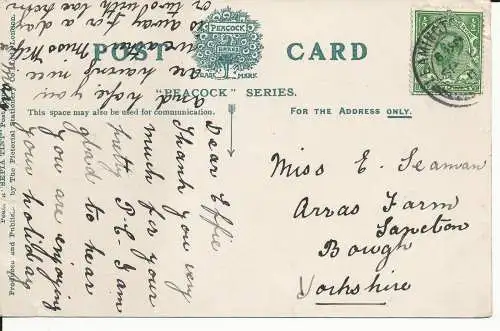 POST CARD
PEACOCK
TRADE MARK
"PEACOCK" SERIES.
This space may also be used for communication.
FOR THE ADDRESS ONLY.
Miss E. Seaman
Arras Farm
Sancton
Bough
Yorkshire
Dear Effie
Thank you very
much for your
pretty P.C. I am
glad to hear
you are enjoying
your holiday
and hope you
are having nice
weather. Miss
is away for a day
or two with
"SEPIA TINT"
by The Pictorial Stationery